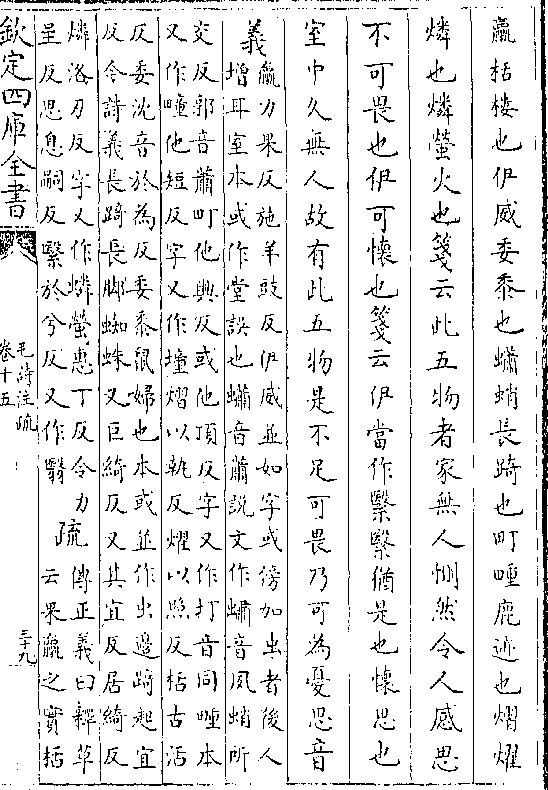 蠃栝樓也伊威委黍也蠨蛸長踦也町畽鹿迹也熠燿
燐也燐螢火也箋云此五物者家無人惻然令人感思
不可畏也伊可懷也箋云伊當作繄繄猶是也懷思也
室中久無人故有此五物是不足可畏乃可為憂思音
義
蠃力果反施羊豉反伊威並如字或傍加虫者後人
增耳室本或作堂誤也蠨音蕭說文作蟰音夙蛸所
交反郭音蕭町他典反或他頂反字又作打音同畽本
又作疃他短反字又作墥熠以執反燿以照反栝古活
反委沈音於為反委黍鼠婦也本或並作虫邊踦起宜
反令詩義長踦長脚蜘蛛又巨綺反又其宜反居綺反
燐洛刃反字又作螢惠丁反令力
呈反思息嗣反繄於兮反又作翳
疏
傳正義曰釋草
云果蠃之實栝
欽定四庫全書
毛詩注疏
卷十五
三十九